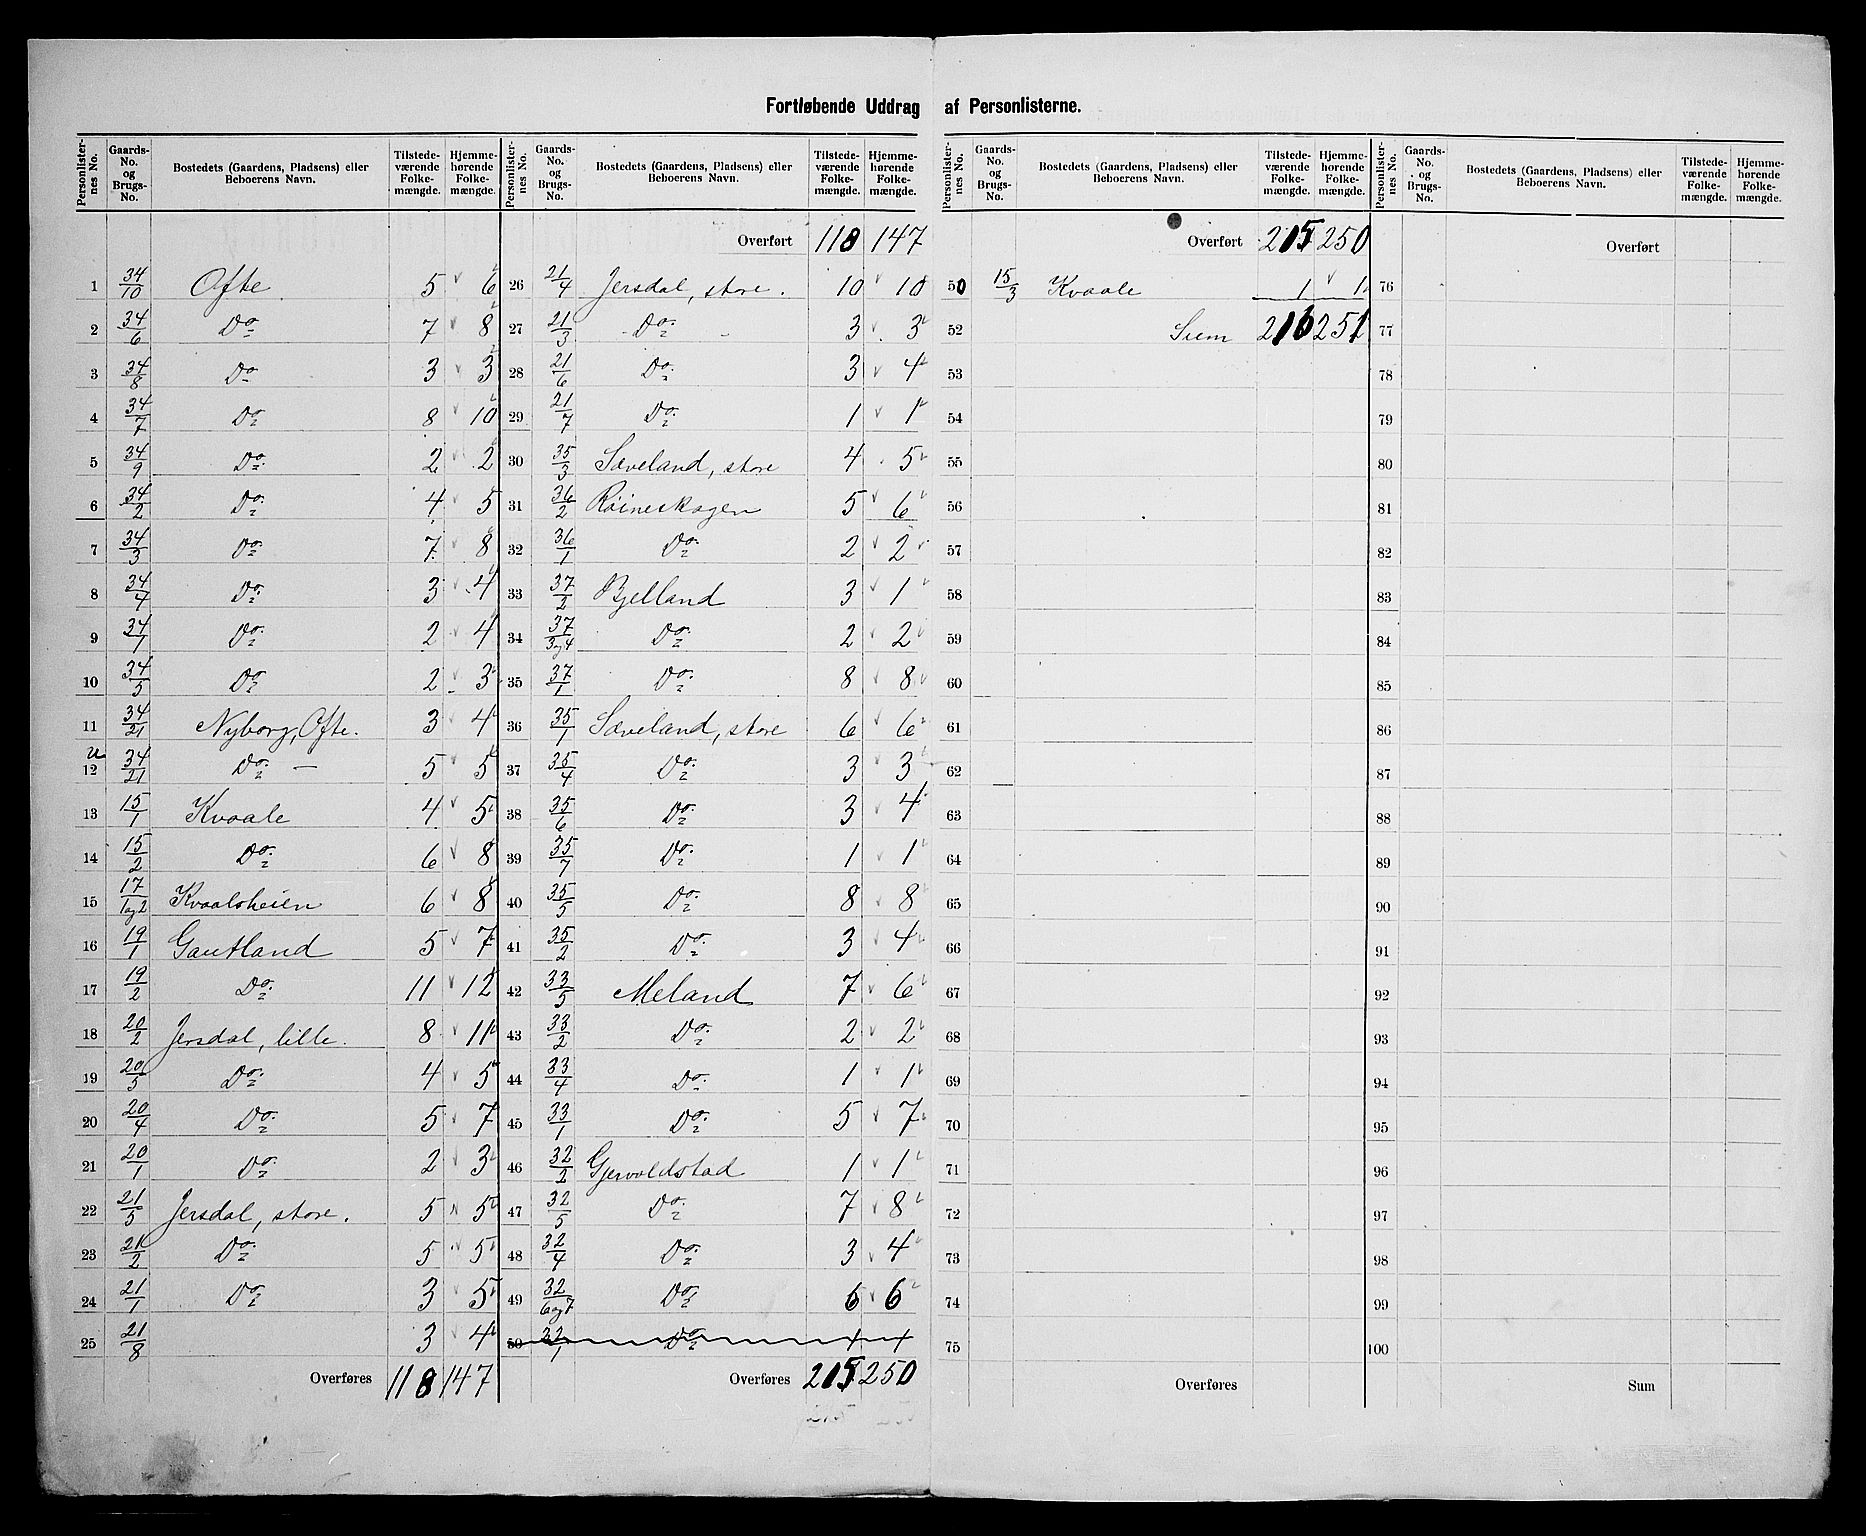 Fortløbende Uddrag af Personlisterne.
Personlister-nes No. | Gaards-No. og Brugs-No. | Bostedets (Gaardens, Pladsens) eller Beboerens Navn. | Tilstede-værende Folke-mængde. | Hjemme-hørende Folke-mængde.
1 34/10 Ofte 5 6
2 34/6 Do 7 8
3 34/8 Do 3 3
4 34/7 Do 8 10
5 34/9 Do 2 2
6 34/2 Do 4 5
7 34/3 Do 7 8
8 34/4 Do 3 4
9 34/1 Do 2 4
10 34/5 Do 2 3
11 34/21 Nyborg, Ofte. 3 4
u 12 34/21 Do — 5 5
13 15/1 Kvaale 4 5
14 15/2 Do 6 8
15 17/1og2 Kvaalsheien 6 8
16 19/1 Gautland 5 7
17 19/2 Do 11 12
18 20/2 Jersdal, lille. 8 11
19 20/5 Do 4 5
20 20/4 Do 5 7
21 20/1 Do 2 3
22 21/5 Jersdal, store. 5 5
23 21/2 Do 5 5
24 21/1 Do 3 5
25 21/8 3 4
Overføres 118 147
Personlister-nes No. | Gaards-No. og Brugs-No. | Bostedets (Gaardens, Pladsens) eller Beboerens Navn. | Tilstede-værende Folke-mængde. | Hjemme-hørende Folke-mængde.
Overført 118 147
26 21/4 Jersdal, store. 10 10
27 21/3 Do 3 3
28 21/6 Do 3 4
29 21/7 Do 1 1
30 35/3 Sæveland, store 4 5
31 36/2 Röineskogen 5 6
32 36/1 Do 2 2
33 37/2 Bjelland 3 1
34 37/3og4 Do 2 2
35 37/1 Do 8 8
36 35/1 Sæveland, store 6 6
37 35/4 Do 3 3
38 35/6 Do 3 4
39 35/7 Do 1 1
40 35/5 Do 8 8
41 35/2 Do 3 4
42 33/5 Meland 7 6
43 33/2 Do 2 2
44 33/4 Do 1 1
45 33/1 Do 5 7
46 32/2 Gjervoldstad 1 1
47 32/5 Do 7 8
48 32/4 Do 3 4
49 32/6og7 Do 6 6
50 32/1 Do 1 1
Overføres 215 250
Personlister-nes No. | Gaards-No. og Brugs-No. | Bostedets (Gaardens, Pladsens) eller Beboerens Navn. | Tilstede-værende Folke-mængde. | Hjemme-hørende Folke-mængde.
Overført 215 250
50 15/3 Kvaale 1 1
52 Sum 216 251
53
54
55
56
57
58
59
60
61
62
63
64
65
66
67
68
69
70
71
72
73
74
75
Overføres
Personlister-nes No. | Gaards-No. og Brugs-No. | Bostedets (Gaardens, Pladsens) eller Beboerens Navn. | Tilstede-værende Folke-mængde. | Hjemme-hørende Folke-mængde.
Overført
76
77
78
79
80
81
82
83
84
85
86
87
88
89
90
91
92
93
94
95
96
97
98
99
100
Sum